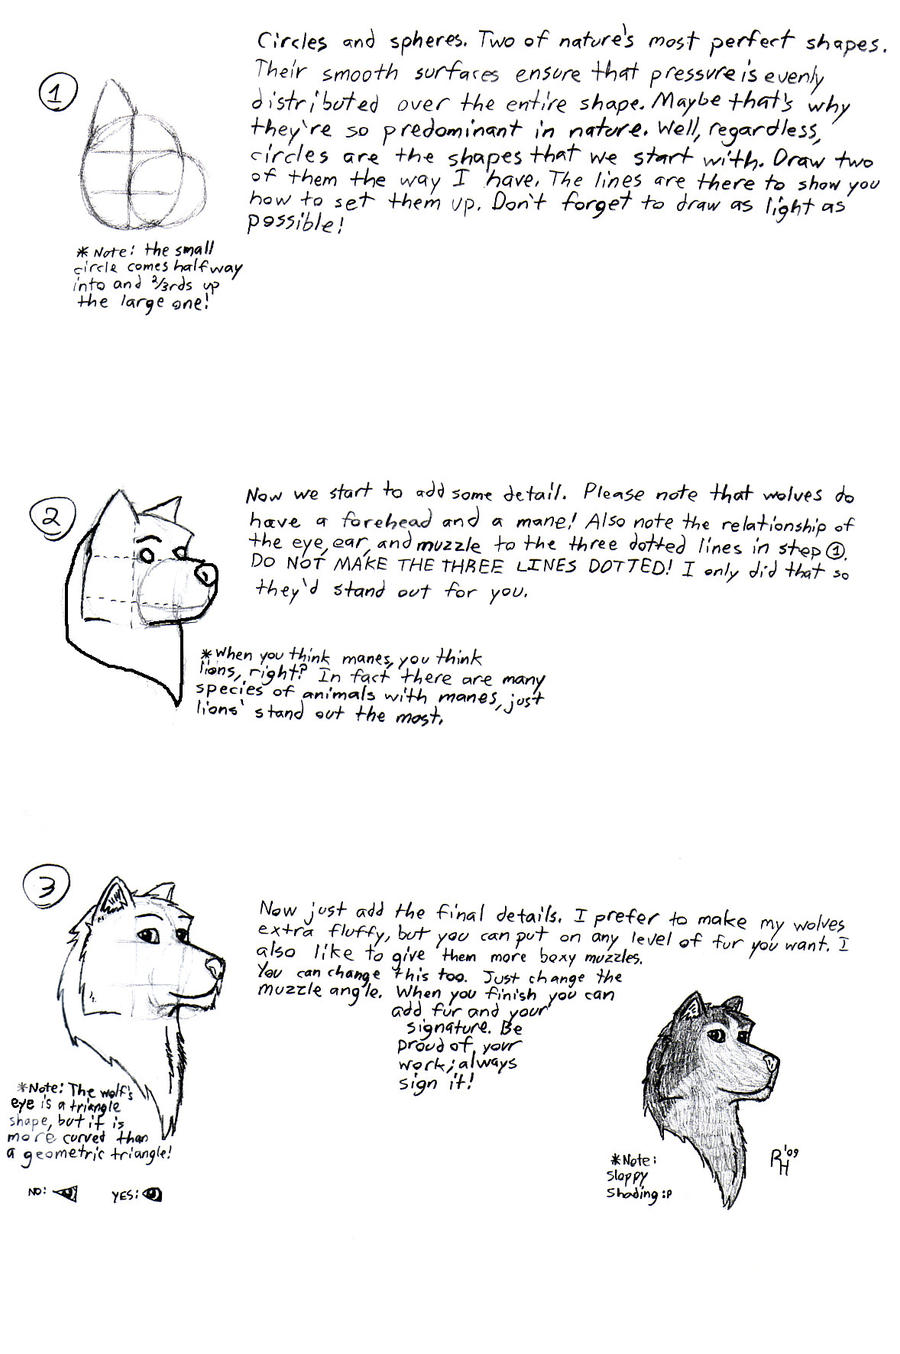 1
Circles and spheres. Two of nature's most perfect shapes.
Their smooth surfaces ensure that pressure is evenly
distributed over the entire shape. Maybe that's why
they're so predominant in nature. Well, regardless,
circles are the shapes that we start with. Draw two
of them the way I have. The lines are there to show you
how to set them up. Don't forget to draw as light as
possible!
*Note: the small
circle comes halfway
into and 2/3rds up
the large one!
2
Now we start to add some detail. Please note that wolves do
have a forehead and a mane! Also note the relationship of
the eye, ear, and muzzle to the three dotted lines in step ①.
DO NOT MAKE THE THREE LINES DOTTED! I only did that so
they'd stand out for you.
*When you think manes, you think
lions, right? In fact there are many
species of animals with manes, just
lions' stand out the most.
3
Now just add the final details. I prefer to make my wolves
extra fluffy, but you can put on any level of fur you want. I
also like to give them more boxy muzzles.
You can change this too. Just change the
muzzle angle. When you finish you can
add fur and your
signature. Be
proud of your
work; always
sign it!
*Note: The wolf's
eye is a triangle
shape, but it is
more curved than
a geometric triangle!
NO: YES:
*Note:
Sloppy
Shading :P
RH '09